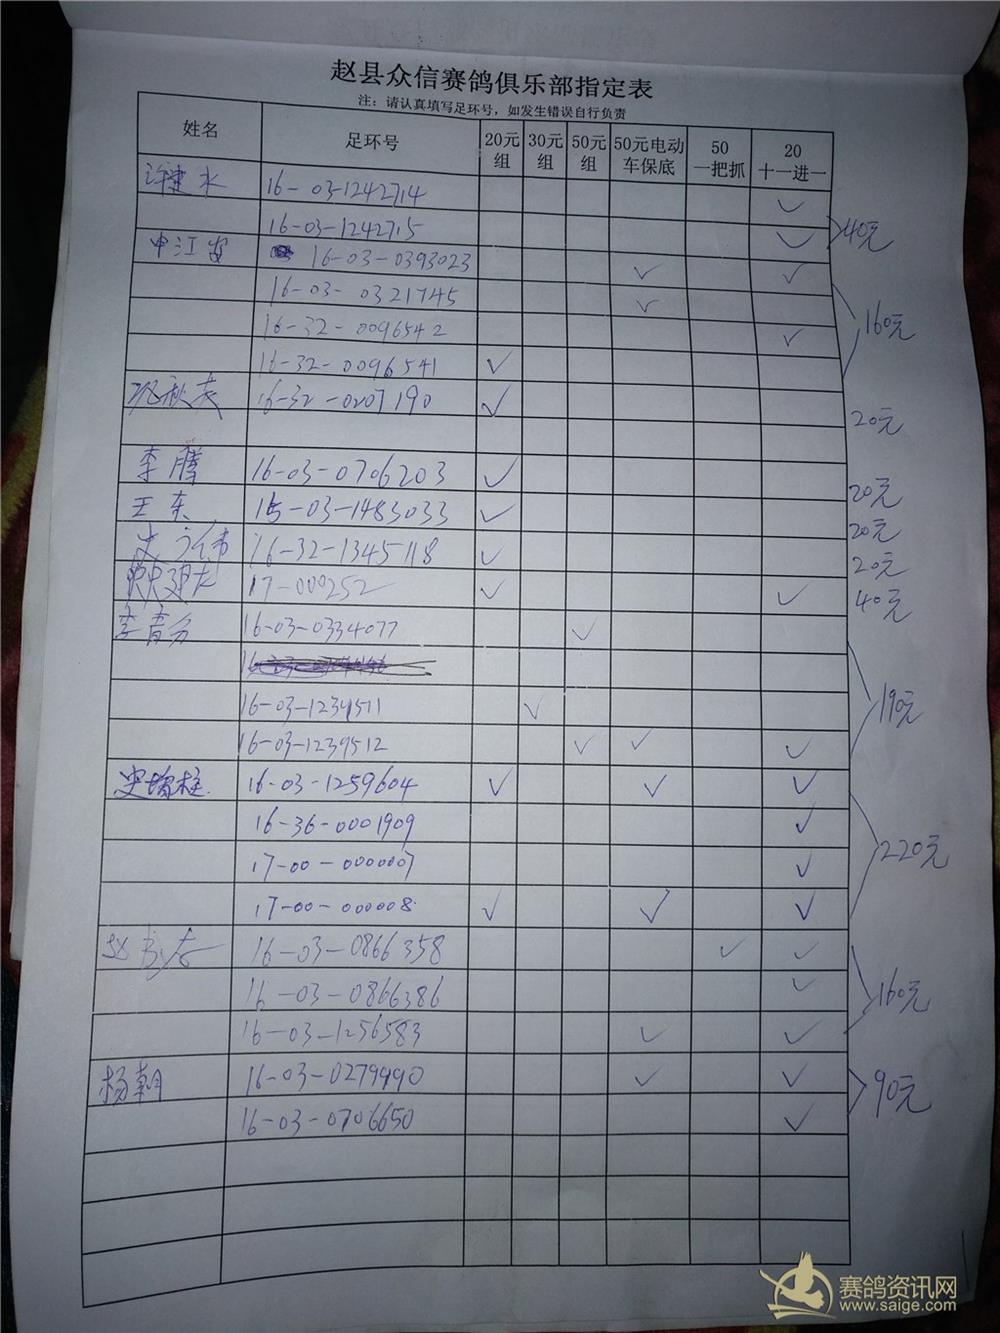 赵县众信赛鸽俱乐部指定表
注：请认真填写足环号，如发生错误自行负责
姓名 足环号 20元组 30元组 50元组 50元电动车保底 50一把抓 20十一进一
许建水 16-03-1242714 ✓
16-03-1242715 ✓ 40元
申江 16-03-0393023 ✓ ✓
16-03-0321745 ✓
16-32-0096542 ✓ 160元
16-32-0096541 ✓
16-32-0207190 ✓ 20元
李腾 16-03-0706203 ✓ 20元
王东 15-03-1483033 ✓ 20元
史 16-32-1345118 ✓ 20元
17-000252 ✓ ✓ 40元
李喜 16-03-0334077 ✓
16-03-1239511 ✓ 190元
16-03-1239512 ✓ ✓ ✓
史增柱 16-03-1259604 ✓ ✓ ✓
16-36-0001909 ✓
17-00-0000007 ✓ 220元
17-00-000008 ✓ ✓ ✓
赵 16-03-0866358 ✓ ✓
16-03-0866386 ✓ 160元
16-03-1256583 ✓ ✓
杨朝 16-03-0279990 ✓ ✓ 90元
16-03-0706650 ✓
赛鸽资讯网
www.saige.com